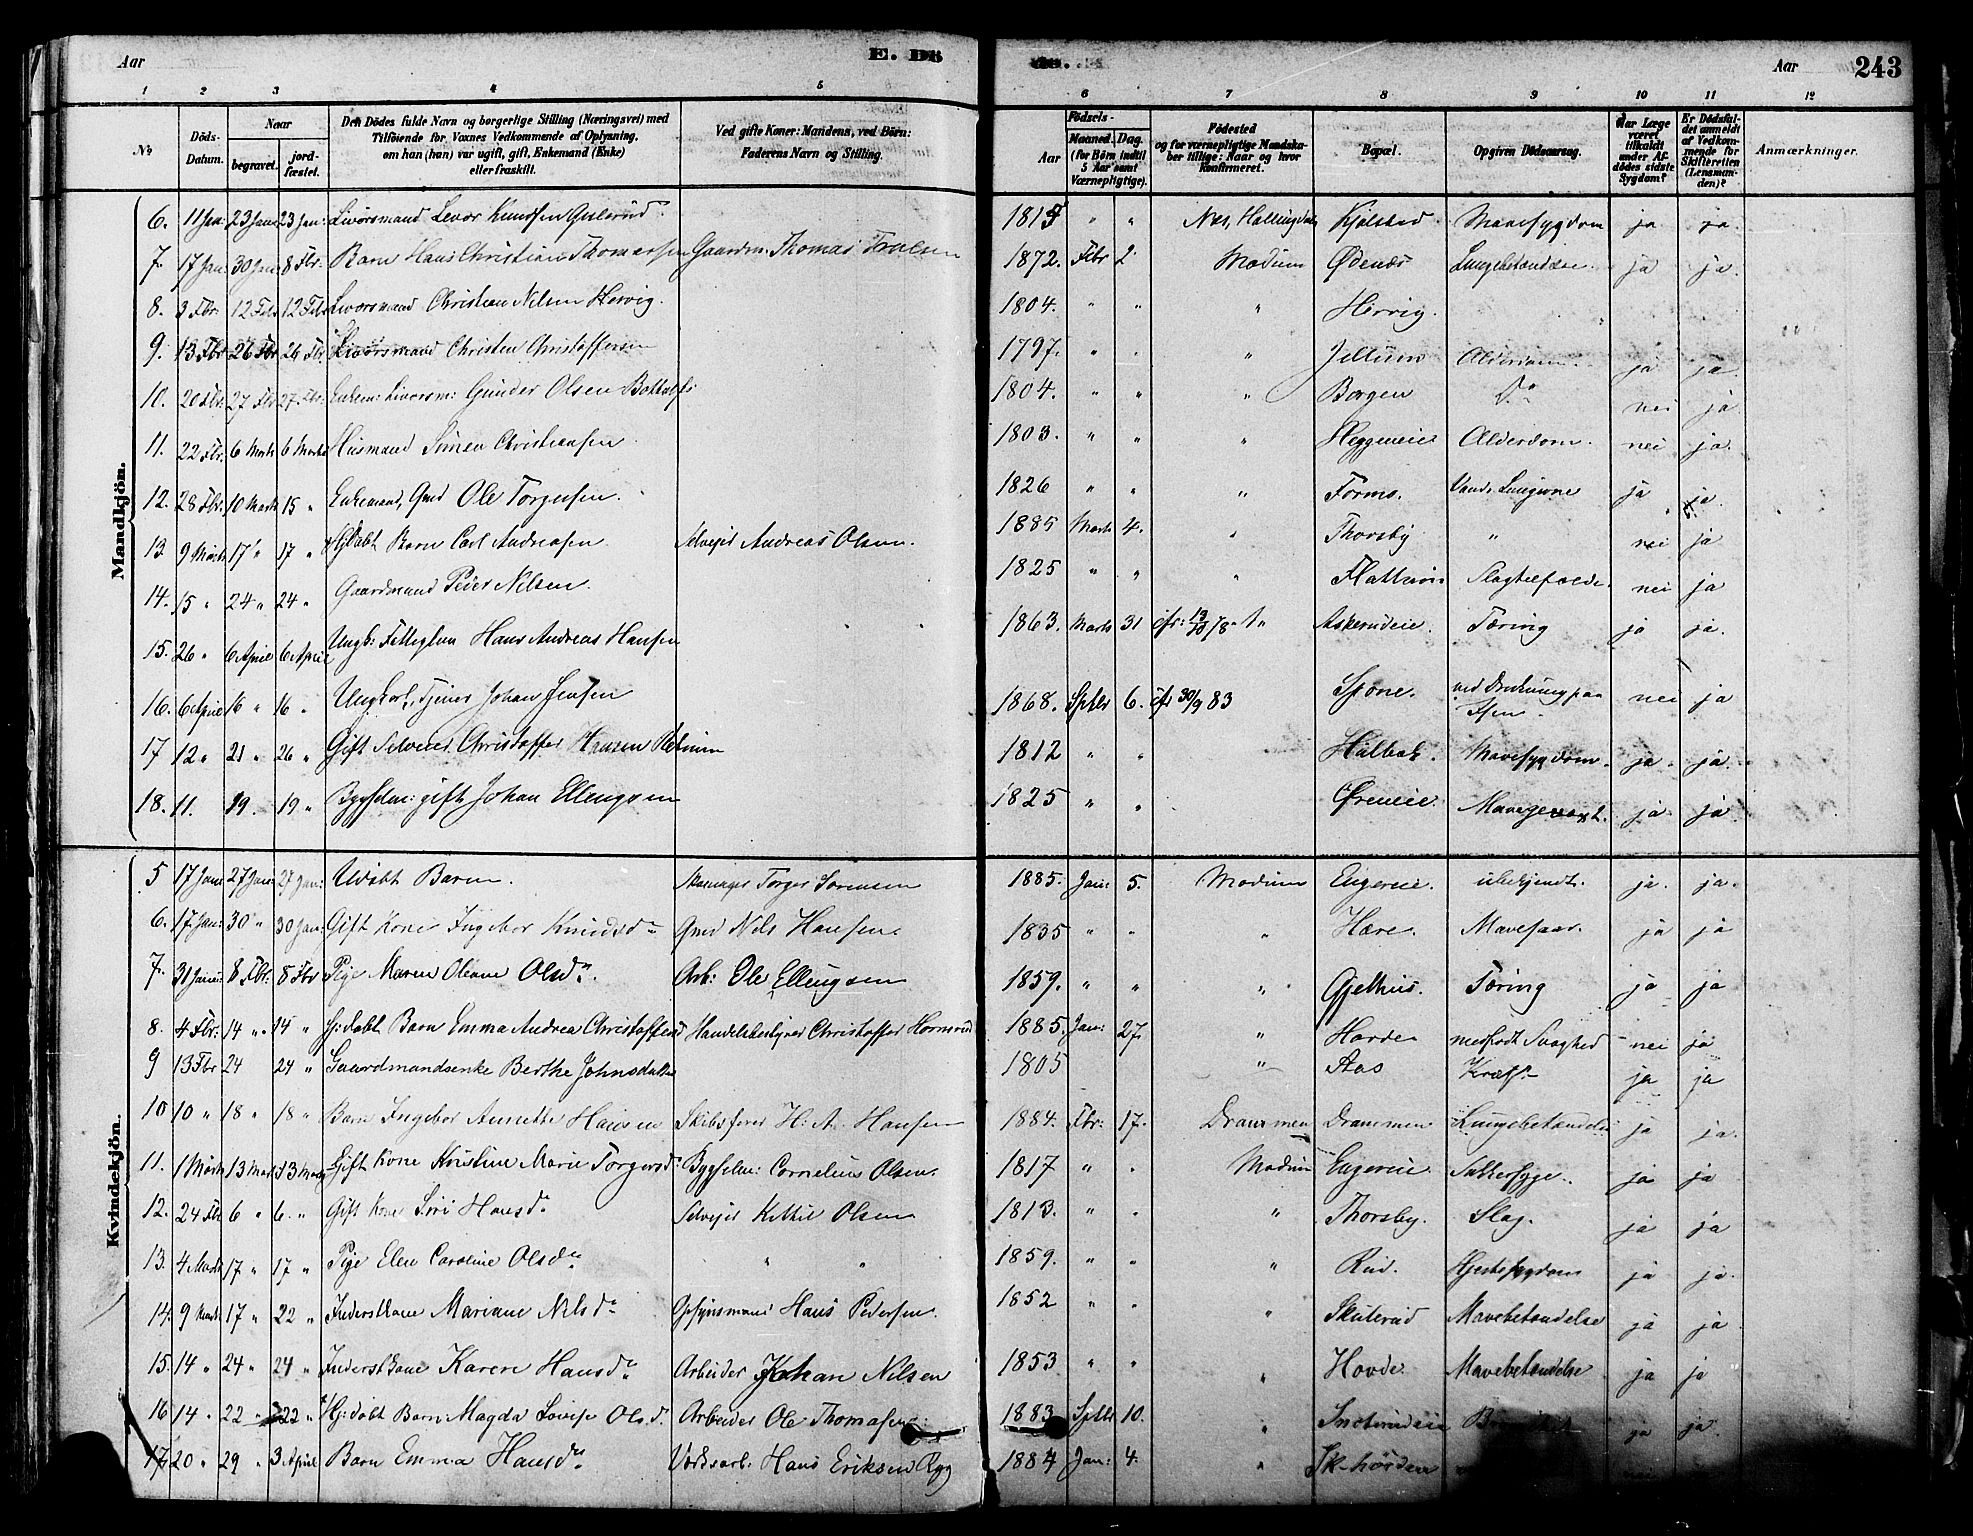 Aar E. Dö de. Aar 243
1 2 3 4 5 6 7 8 9 10 11 12
No Döds-Datum. Naar begravet. jordfæstet. Den Dödes fulde Navn og borgerlige Stilling (Næringsvei) med Tilföiende for Voxnes Vedkommende af Oplysning, om han (hun) var ugift, gift, Enkemand (Enke) eller fraskilt. Ved gifte Koner: Mandens, ved Börn: Faderens Navn og Stilling. Födsels- Aar Maaned. Dag. (for Börn indtil 5 Aar samt Værnepligtige). Födested og for værnepligtige Mandskaber tillige: Naar og hvor Konfirmeret. Bopæl. Opgiven Dödsaarsag. Har Læge været tilkaldt under Afdödes sidste Sygdom? Er Dödsfaldet anmeldt af Vedkommende for Skifteretten (Lensmanden)? Anmærkninger.
Mandkjön.
6. 11 Jan: 23 Jan: 23 Jan: Livörsmand Levor Knudsen Gulsrud 181 " " Nes, Hallingdal Kjølstad Mavesygdom ja ja.
7. 17 Jan: 30 Jan: 8 Fbr. Barn Hans Christian Thomassen Gaardm. Thomas Trulsen 1872. Febr 2. Modum Ødenæs Lungebetændelse ja ja.
8. 3 Fbr. 12 Feb 12 Feb Livörsmand Christen Nilsen Hervig. 1804. " " " Hervig.
9. 13 Fbr 26 Fbr 26 Fbr. Livörsmand Christen Christoffersen 1797. " " " Jellum Alderdom. ja ja.
10. 20 Fbr. 27 Fbr 27 Fbr: Enkem: Livörsm: Gunder Olsen 1804. " " " Borgen Do nei ja.
11. 22 Fbr. 6 Marts 6 Marts Husmand Simen Christiansen. 1803. " " " Heggeneie Alderdom. nei ja.
12. 28 Fbr. 10 Marts 15 " Enkemand, Gmd Ole Torgersen. 1826 " " " Formo. Vand i Lungerne ja ja.
13. 9 Marts 17 " 17 " Hj:døbt Barn Carl Andreasen Selveier Andreas Olsen. 1885 Marts 4. " Thorsby " nei ja
14. 15 " 24 " 24 " Gaardmand Peder Nilsen. 1825 " " " Slagtilfælde nei ja
15. 26 " 6 April 6 April Ungk: Fattiglem Hans Andreas Hansen 1863. Marts 31 Askerudeie. Tæring ja ja.
16. 6 April 16 " 16 " Ungkarl, Tjener Johan Jensen 1868. Septbr 6. cfr 30/9 83 Spone. ved Drukning paa nei ja
17 12 " 21 " 26 " Gift Selveier Christoffer Hansen 1812 " " Hulbak. Mavesygdom. ja. ja.
18. 11. 19. 19 " Bygselm: gift Johan Ellingsen 1825 " " Øreneie. Mavegevæxt. ja ja
Kvindekjön.
5 17 Jan: 27 Jan: 27 Jan: Udøbt Barn. Torger Sørensen 1885. Jan: 5. Modum Engereie. ubekjendt. ja. ja.
6. 17 Jan: 30 " 30 Jan: Gift Kone Ingebor Knudsdr Gmd Nils Hansen. 1835 " " " Hære. Mavesaar. ja ja
7. 31 Januar 8 Fbr: 8 Fbr Pige Maren Oleane Olsdr. Arb: Ole Ellingsen 1859. " " " Gjethus. Tæring ja ja
8. 4 Fbr: 14 " 15 " Hj:døbt Barn Emma Andrea Christoffersd Handelsbestyrer Christoffer Hornsrud 1885. Jan: 27. " Hovde medfødt Svaghed nei ja
9 13 Fbr 24 24 " Gaardmandsenke Berthe Johnsdatter 1805 " Aas Kræft ja ja
10 10 " 18 " 18 " Barn Ingebor Annette Hansen Skibsfører H: A. Hansen 1884. Fbr: 17. Drammen Drammen Lungebetændelse ja ja.
11. 1 Marts 13 Marts 13 Marts Gift Kone Kristine Marie Torgersd: Bygselm: Cornelius Olsen. 1817 " " Modum Engereie. Sukkersyge. ja ja
12. 24 Fbr 6 " 6. " Gift Kone Siri Hansdr Selveier Kittil Olsen 1813. " " " Thorsby. Slag. ja ja
13. 4 Marts 17 " 17 " Pige Elen Caroline Olsdr " " 1859. " " " Rud. Hjertesygdom ja ja.
14. 9 Marts 17 " 22 " Inderstkone Mariane Nilsdr Opsynsmand Hans Pedersen. 1852 " " " Skuterud Mavebetændelse ja ja
15. 14 " 24 " 24 " Inderstkone Karen Hansdr Arbeider Johan Nilsen 1853 " " " Hovde. Mavebetændelse ja ja
16 14 " 22 " 22 " Hj:døbt Barn: Magda Lovise Olsd. Arbeider Ole Thomasen. 1883 Septbr 10. " Snoterudeie ja ja.
17 20 " 29 " 3 April Barn Emma Hansdr Hans Eriksen Ryg 1884 Jan: 4. "